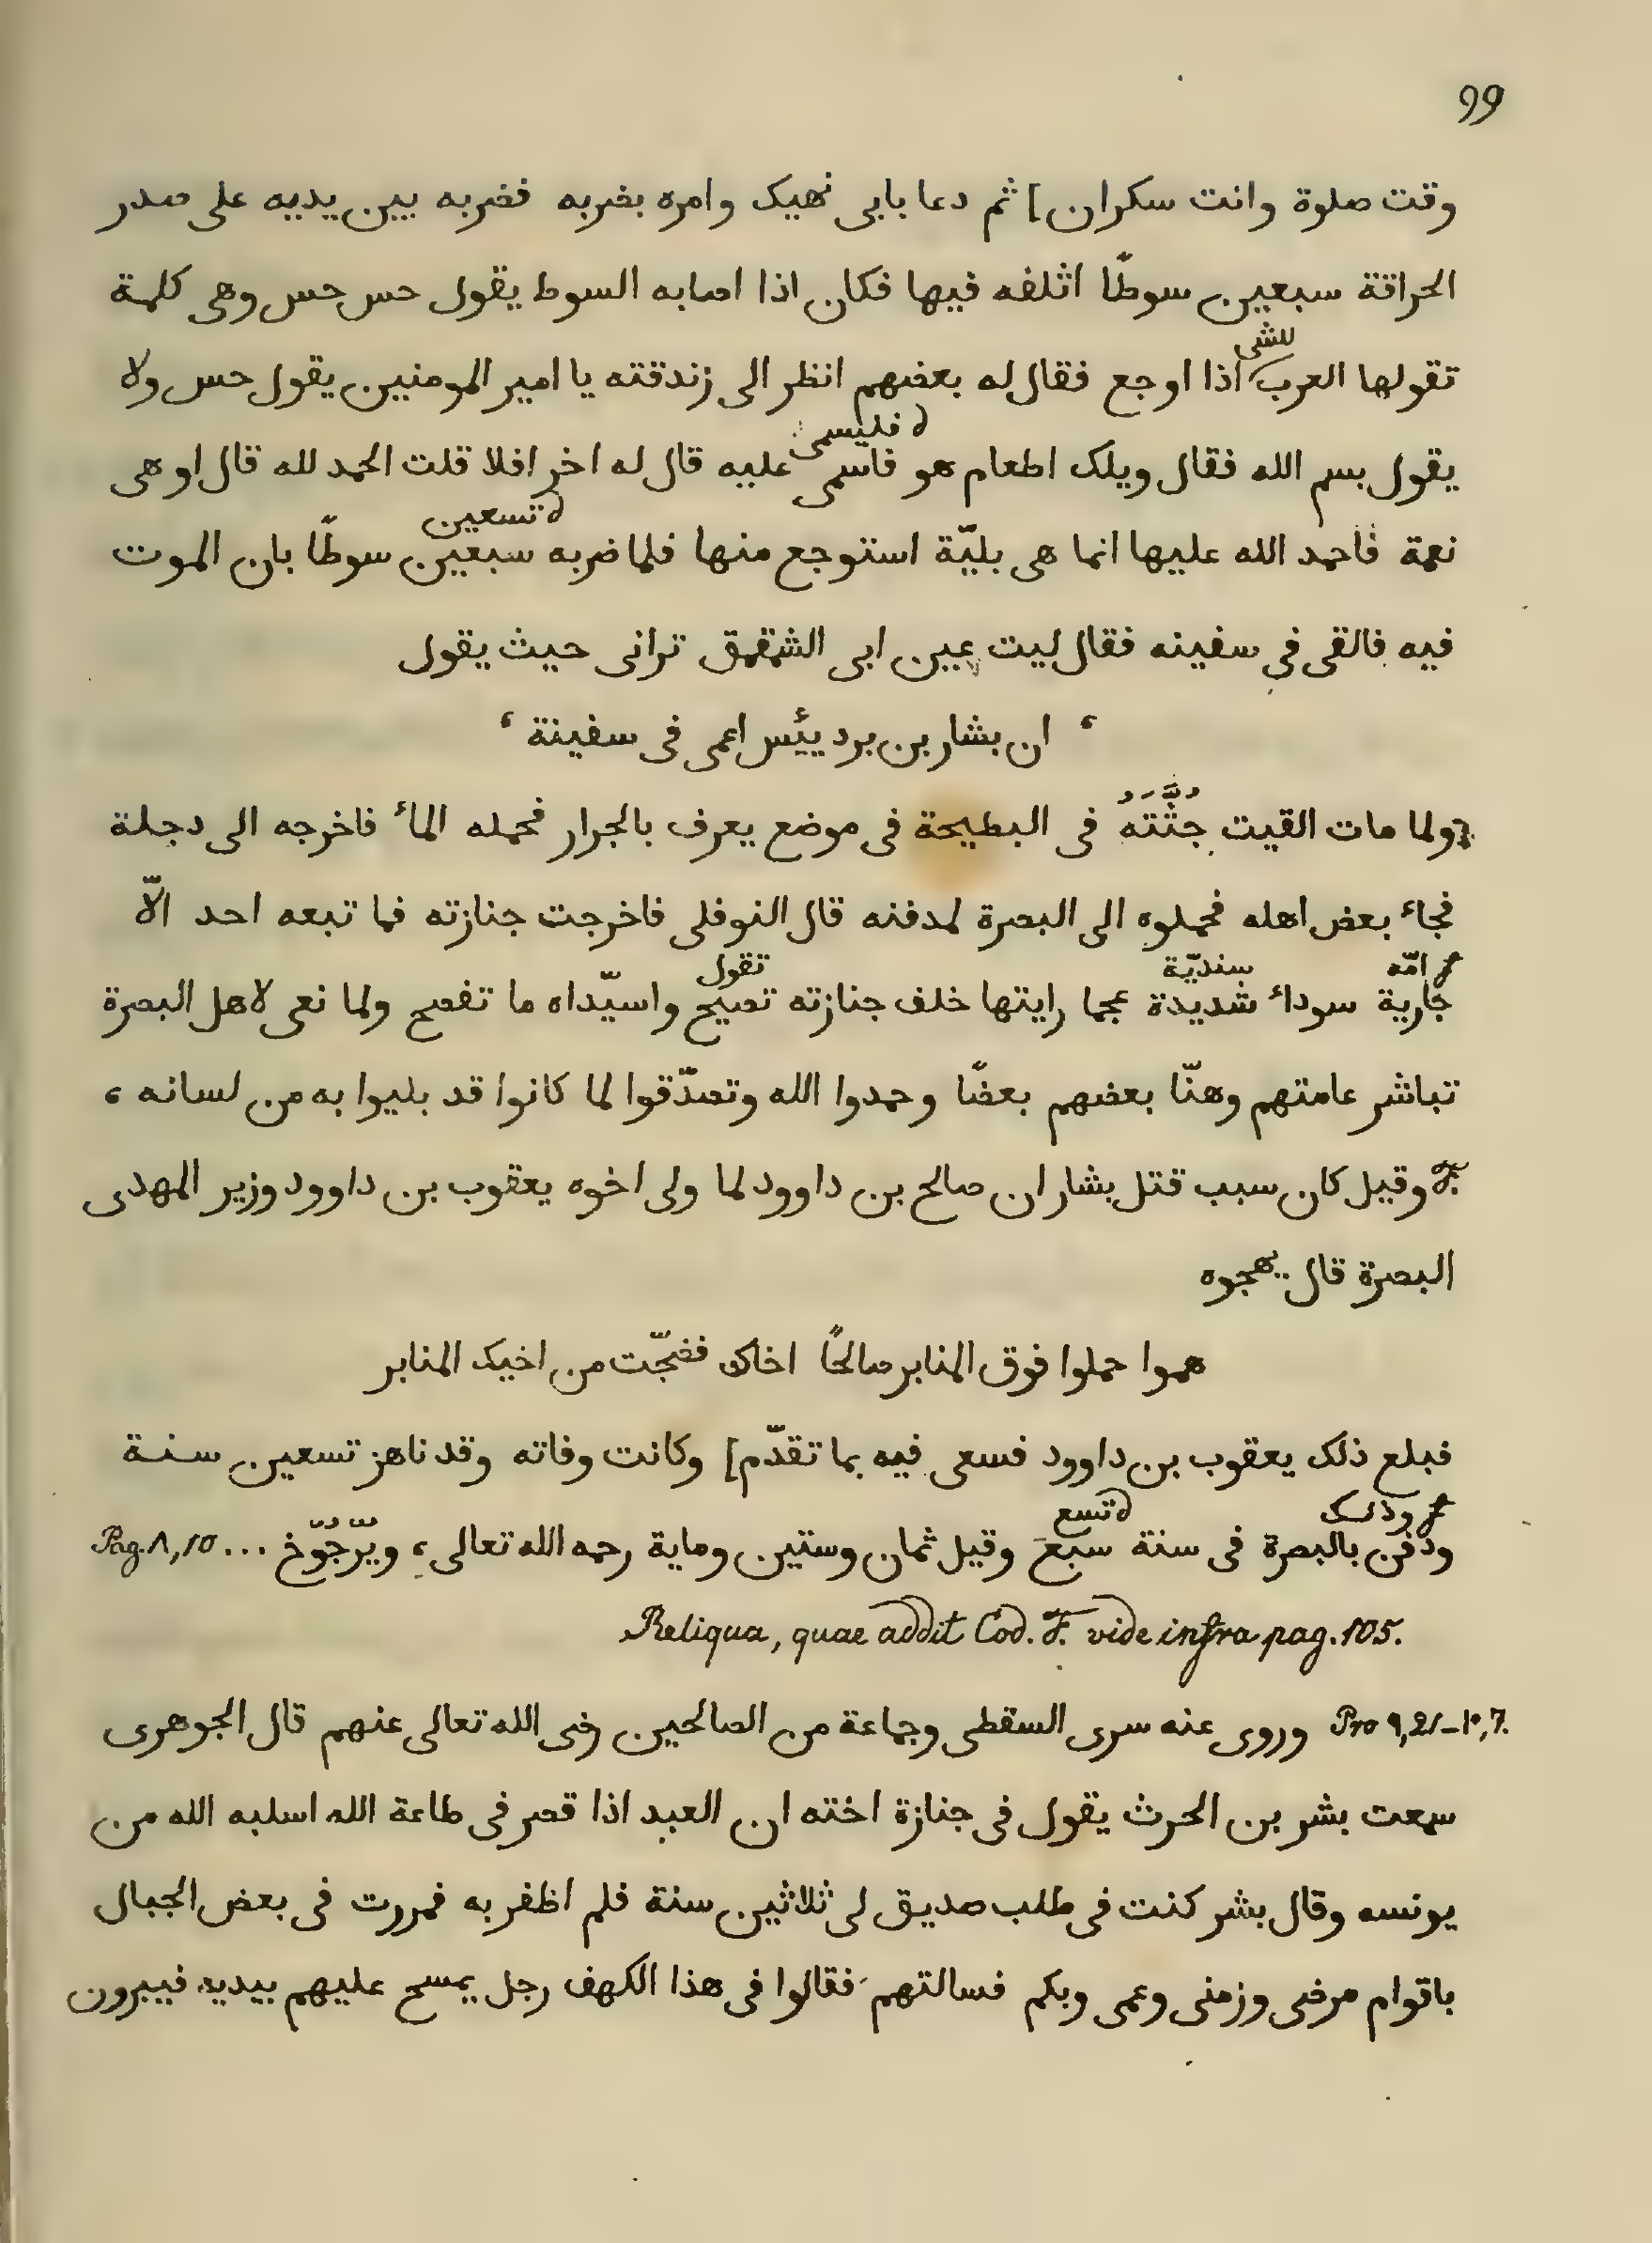 99
وقت صلوة وانت سكران] ثم دعا بابى نهيك وامره بضربه فضربه بين يديه على صدر
الحراقة سبعين سوطًا اتلفه فيها فكان اذا اصابه السوط يقول حس حس وهى كلمة
للشى
تقولها العرب اذا اوجع فقال له بعضهم انظر الى زندقته يا امير المومنين يقول حس ولا
فليسمى
يقول بسم الله فقال ويلك اطعام هو فاسمى عليه قال له اخر افلا قلت الحمد لله قال او هى
تسعين
نعمة فأحمد الله عليها انما هى بليّة استوجع منها فلما ضربه سبعين سوطًا بان الموت
فيه فالقى فى سفينه فقال ليت عين ابى الشمقمق ترانى حيث يقول
، ان بشار بن برد تيس اعمى فى سفينة ،
ولما مات القيت جثّته فى البطيحة فى موضع يعرف بالجرار فحمله الماء فاخرجه الى دجلة
فجاء بعض اهله فحملوه الى البصرة لمدفنه قال النوفلى فاخرجت جنازته فما تبعه احد الّا
امّه سنديّة تقول
جارية سوداء شديدة عجما رايتها خلف جنازته تصيح واسيّداه ما تفصح ولما نعى لاهل البصرة
تباشر عامتهم وهنّا بعضهم بعضًا وحمدوا الله وتصدّقوا لما كانوا قد بليوا به من لسانه ،
F. وقيل كان سبب قتل بشار ان صالح بن داوود لما ولى اخوه يعقوب بن داوود وزير المهدى
البصرة قال يهجوه
هموا حملوا فوق المنابر صالحًا اخاك فضجّت من اخيك المنابر
فبلع ذلك يعقوب بن داوود فسعى فيه بما تقدّم] وكانت وفاته وقد ناهز تسعين سنة
وذلك تسع
ودفن بالبصرة فى سنة سبع وقيل ثمان وستين وماية رحمه الله تعالى ، ويرجّوخ ... Pag. ٨, 10
Reliqua, quae addit Cod. F. vide infra pag. 105.
Pro ٩, 21–١٠, 7. وروى عنه سرى السقطى وجماعة من الصالحين رضى الله تعالى عنهم قال الجوهرى
سمعت بشر بن الحرث يقول فى جنازة اخته ان العبد اذا قصر فى طاعة الله اسلبه الله من
يونسه وقال بشر كنت فى طلب صديق لى ثلاثين سنة فلم اظفر به فمررت فى بعض الجبال
باقوام مرضى وزمنى وعمى وبكم فسالتهم فقالوا فى هذا الكهف رجل يمسح عليهم بيديه فيبرون